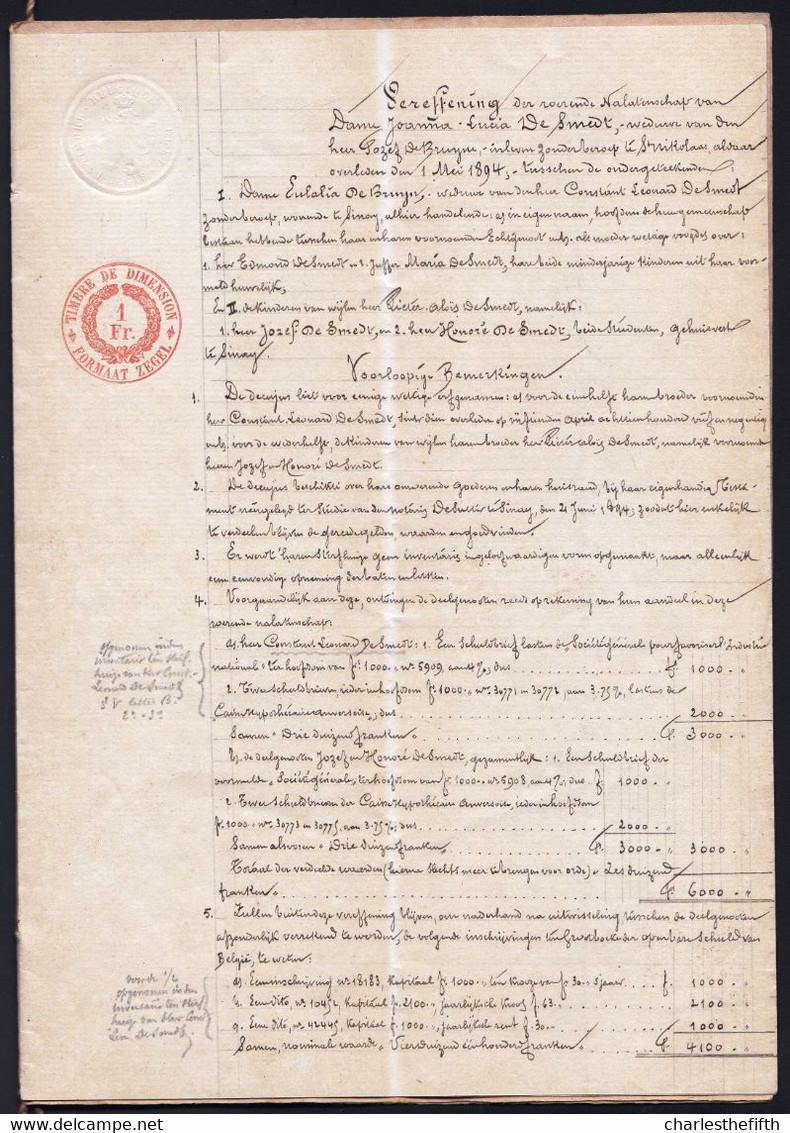 Vereffening der roerende Nalatenschap van
Dame Joanna-Lucia De Smedt, weduwe van den
heer Jozef De Bruyne, in leven zonder beroep te St Nikolaas, aldaar
overleden den 1 Mei 1894, tusschen de ondergeteekenden:
I. Dame Eulalia De Bruyn, weduwe van den heer Constant Leonard De Smedt
zonder beroep, wonende te Sinay, alhier handelende, a) in eigen naam, hoofdens de huwgemeenschap
bestaan hebbende tusschen haar en haren voornoemden Echtgenoot en b) als moeder wettige voogdes over:
1. heer Edmond De Smedt en 2. Juffer Maria De Smedt, hare beide minderjarige kinderen uit haar voor-
meld huwelijk;
En II. de kinderen van wijlen heer Pieter-Aloïs De Smedt, namelijk:
1. heer Jozef De Smedt, en 2. heer Honoré De Smedt, beide studenten, gehuisvest
te Sinay.
TIMBRE DE DIMENSION
1
Fr.
FORMAAT ZEGEL
Voorloopige Bemerkingen.
1. De decujus liet voor eenige wettige erfgenamen: a) voor de eene helft haren broeder voornoemden
heer Constant Leonard De Smedt, sinds dien overleden op vijftienden April achttienhonderd vijf en negentig
en b) voor de wederhelft, de kinderen van wijlen haren broeder heer Pieter Aloïs De Smedt, namelijk voornoemde
heeren Jozef en Honoré De Smedt.
2. De decujus beschikte over hare onroerende goederen en haren huisraad, bij haar eigenhandig Testa-
ment neergelegd ter studie van den notaris De Sutter te Sinay, den 21 Juni 1894; zoodat hier enkelijk
te verdeelen blijven de gereede gelden, waarden en goedvinden.
3. Er werdt haren sterfhuize geen inventaris in geloofwaardigen vorm opgemaakt, maar alleenlijk
een eenvoudig opneming der baten en lasten.
4. Voorgaandelijk aan deze, ontvingen de deelgenooten reeds op rekening van hun aandeel in deze
roerende nalatenschap:
a). heer Constant Leonard De Smedt: 1. Een Schuldbrief lasten de Société Générale pour favoriser l'Industrie
nationale ter hoofdsom van fr. 1000.- nr 5909, aan 4%, dus f. 1000 "
2. Twee schuldbrieven ieder in hoofdsom fr. 1000.- nrs 30771 en 30772, aan 3.75%, lastens de
Caisse Hypothécaire Anversoise, dus 2000 "
Samen " Drie duizend franken " f. 3000 "
b). de deelgenooten Jozef en Honoré De Smedt, gezamentlijk: 1. Een Schuldbrief der
voormelde Société Générale, ter hoofdsom van fr. 1000.- nr 5908, aan 4%, dus f. 1000 "
2. Twee Schuldbrieven der Caisse Hypothécaire Anversoise, ieder in hoofdsom
fr. 1000.- nrs 30773 en 30775, aan 3.75%, dus 2000 "
Samen als voren " Drie duizend franken " f. 3000 " 3000 "
Totaal der verdeelde waarden (hierna slechts meer te brengen voor orde) " Zes duizend
franken " f. 6000 "
5. Zullen buiten deze vereffening blijven, om naderhand na uitwisseling tusschen de deelgenooten
afzonderlijk verrekend te worden, de volgende inschrijvingen ten Grootboeke der openbare Schuld van
België, te weten:
a). Eene inschrijving nr 18183, kapitaal fr. 1000.- ten krooze van fr 30.- 's jaars f. 1000 "
b. Eene dito, nr 10452, kapitaal fr. 2100.-, jaarlijksche kroos f. 63.- 2100 "
c. Eene dito, nr 42445, kapitaal fr. 1000.-, jaarlijksche rent f. 30.- 1000 "
Samen, nominale waarde " Vierduizend éénhonderd franken " f. 4100 "
opgenomen in den
inventaris ten sterf-
huize van heer Const.
Leonard De Smedt
§ V letter B.
2° - 3°
voor de 1/2
opgenomen in den
inventaris ten sterf-
huize van heer Const
Leon. De Smedt.
charlesthefifth